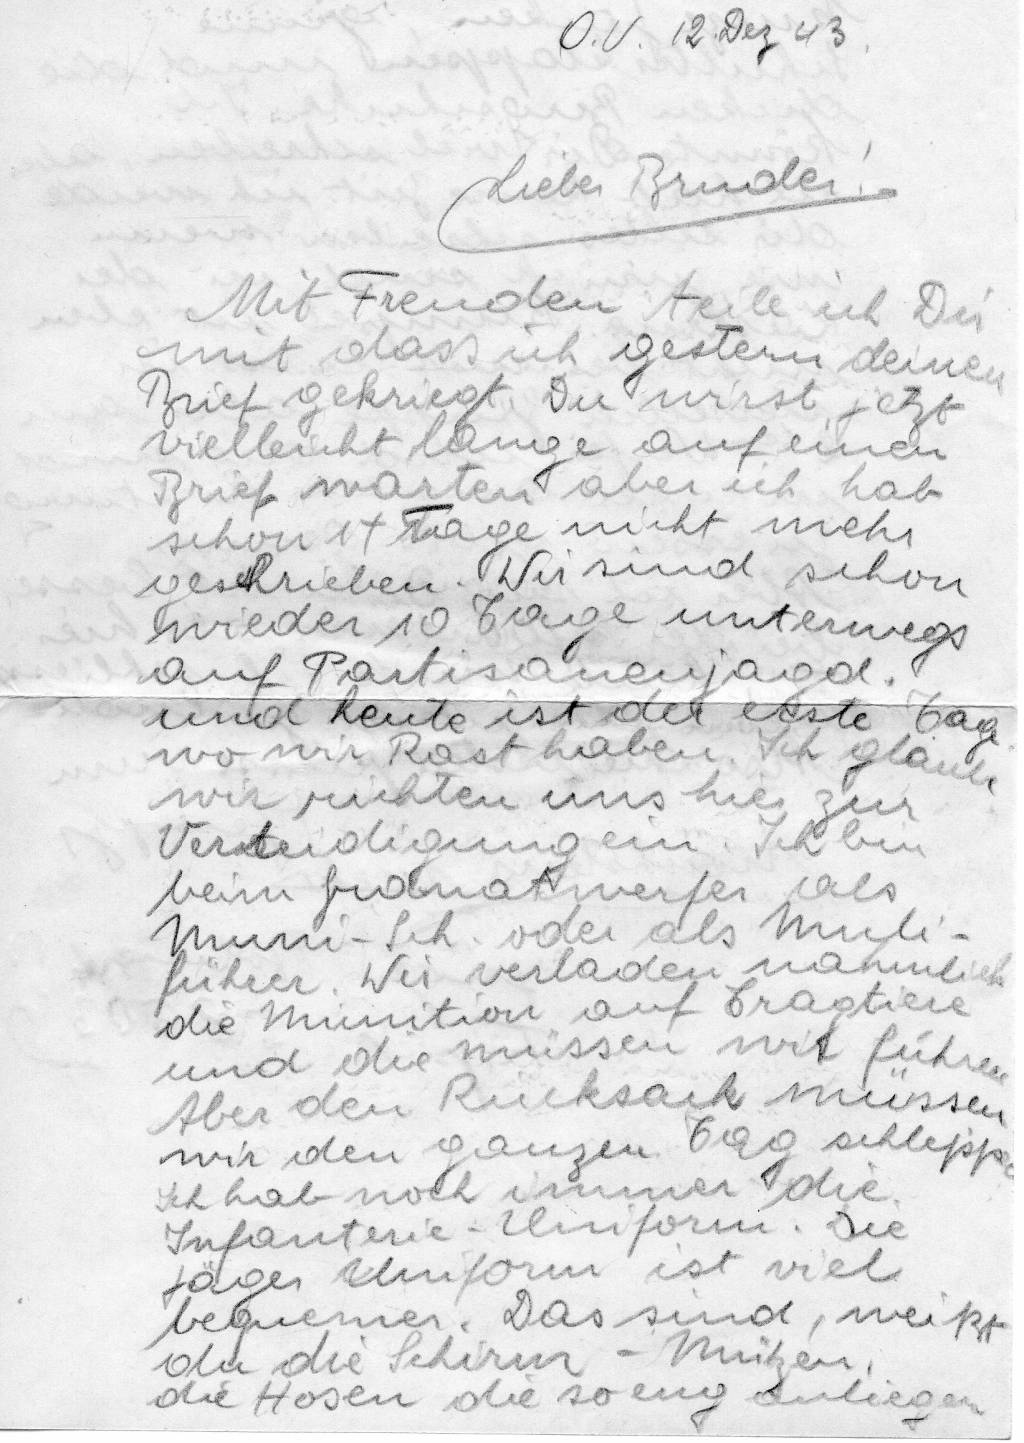 O.U. 12. Dez 43.
Lieber Bruder!
Mit Freuden teile ich Dir
mit dass ich gestern deinen
Brief gekriegt. Du wirst jetzt
vielleicht lange auf einen
Brief warten aber ich hab
schon 14 Tage nicht mehr
geschrieben. Wir sind schon
wieder 10 Tage unterwegs
auf Partisanenjagd.
und heute ist der erste Tag
wo wir Rast haben. Ich glaube
wir richten uns hier zur
Verteidigung ein. Ich bin
beim Granatwerfer als
Muni-Sch. oder als Muli-
führer. Wir verladen nähmlich
die Munition auf Tragtiere
und die müssen wir führen
Aber den Rucksack müssen
wir den ganzen Tag schleppen
Ich hab noch immer die
Infanterie-Uniform. Die
Jäger Uniform ist viel
bequemer. Das sind, weißt
du die Schirm-Mützen,
die Hosen die so eng anliegen